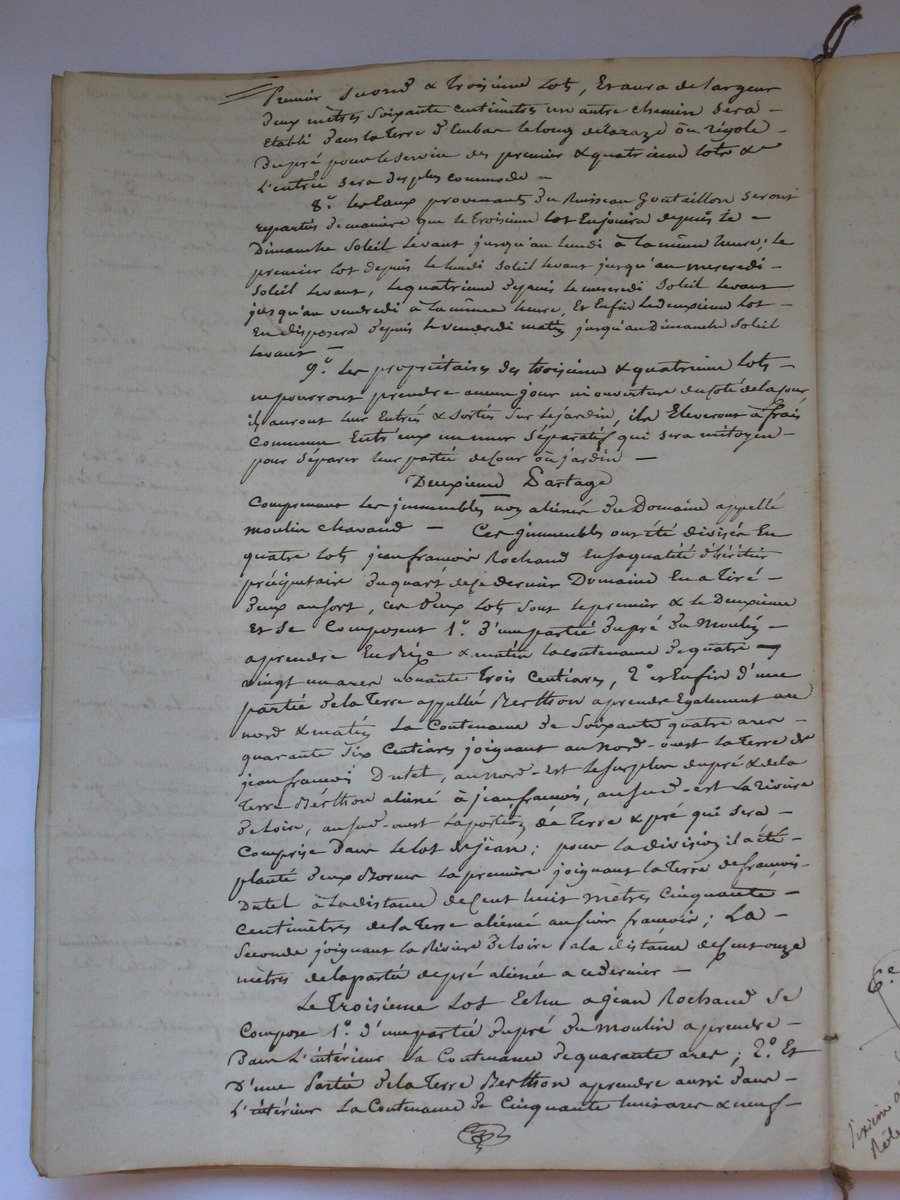 Premier Second & Troisième Lots, Et aura de largeur
deux mètres soixante centimètres un autre chemin sera
Etabli dans la Terre d'Embas le long de la raze ou rigole
du pré pour le service des premier & quatrieme lots &
L'entrée sera des plus commode –
8.° Les Eaux provenant du Ruisseau Goutaillon seront
repartis de maniere que le troisieme Lot En jouira depuis le –
Dimanche Soleil Levant jusqu'au Lundi à la même heure; le
premier lot depuis le lundi Soleil Levant jusqu'au mercredi –
Soleil Levant, Le quatrieme depuis le mercredi Soleil Levant
jusqu'au vendredi à la même heure, Et Enfin Le deuxieme Lot –
En disposera depuis le vendredi matin jusqu'au Dimanche Soleil
Levant –
9.° Les propriétaires des troisieme & quatrieme Lots –
ne pourront prendre aucun jour ni ouverture du coté de la cour
ils auront leur Entrés & Sortés sur Le jardin, ils Eleveront à frais
Commun Entr'eux un mur Séparatif qui sera mitoyen –
pour séparer leur partié de Cour ou jardin –
Deuxieme Partage
Comprenant Les jmmeubles non aliénés du Domaine appellé
moulin chavand – Ces jmmeubles ont été divisés En
quatre Lots jean francois Rochand En sa qualité d'héritier
préciputaire du quart de ce dernier Domaine En a Tiré –
deux au sort, ces deux Lots sont le premier & Le Deuxieme
Et Se Composent 1.° d'une partié du pré du Moulin –
a prendre En bize & matin la contenance de quatre –
vingt un ares nonante Trois Centiares, 2.° et Enfin d'une
partié de la Terre appellé Berthon a prendre Egalement au
nord & matin La Contenance de Soixante quatre ares –
quarante Six Centiares joignant au Nord-ouest La Terre de
jean francois Dutel, au nord-est Le Surplus du pré & de la
Terre Berthon aliéné à jean francois, au sud-est La Riviere
de Loire, au sud-ouest La portion de Terre & pré qui sera –
Comprise dans Le Lot de jean; pour la division il a été
planté deux Bornes la premiere joignant la Terre de francois
Dutel à La distance de Cent huit mètres Cinquante –
Centimètres de la Terre aliené au sieur francois; La –
Seconde joignant la Riviere de Loire a la distance de Cent onze
mètres de la partié de pré aliénée a ce dernier –
Le Troisieme Lot Echu a jean Rochand Se
Compose 1.° d'une partié du pré du moulin a prendre –
Dans L'intérieur La Contenance de quarante ares; 2.° Et
D'une Partié de la Terre Berthon a prendre aussi dans –
L'intérieur La Contenance de Cinquante huit ares & neuf –
6.e